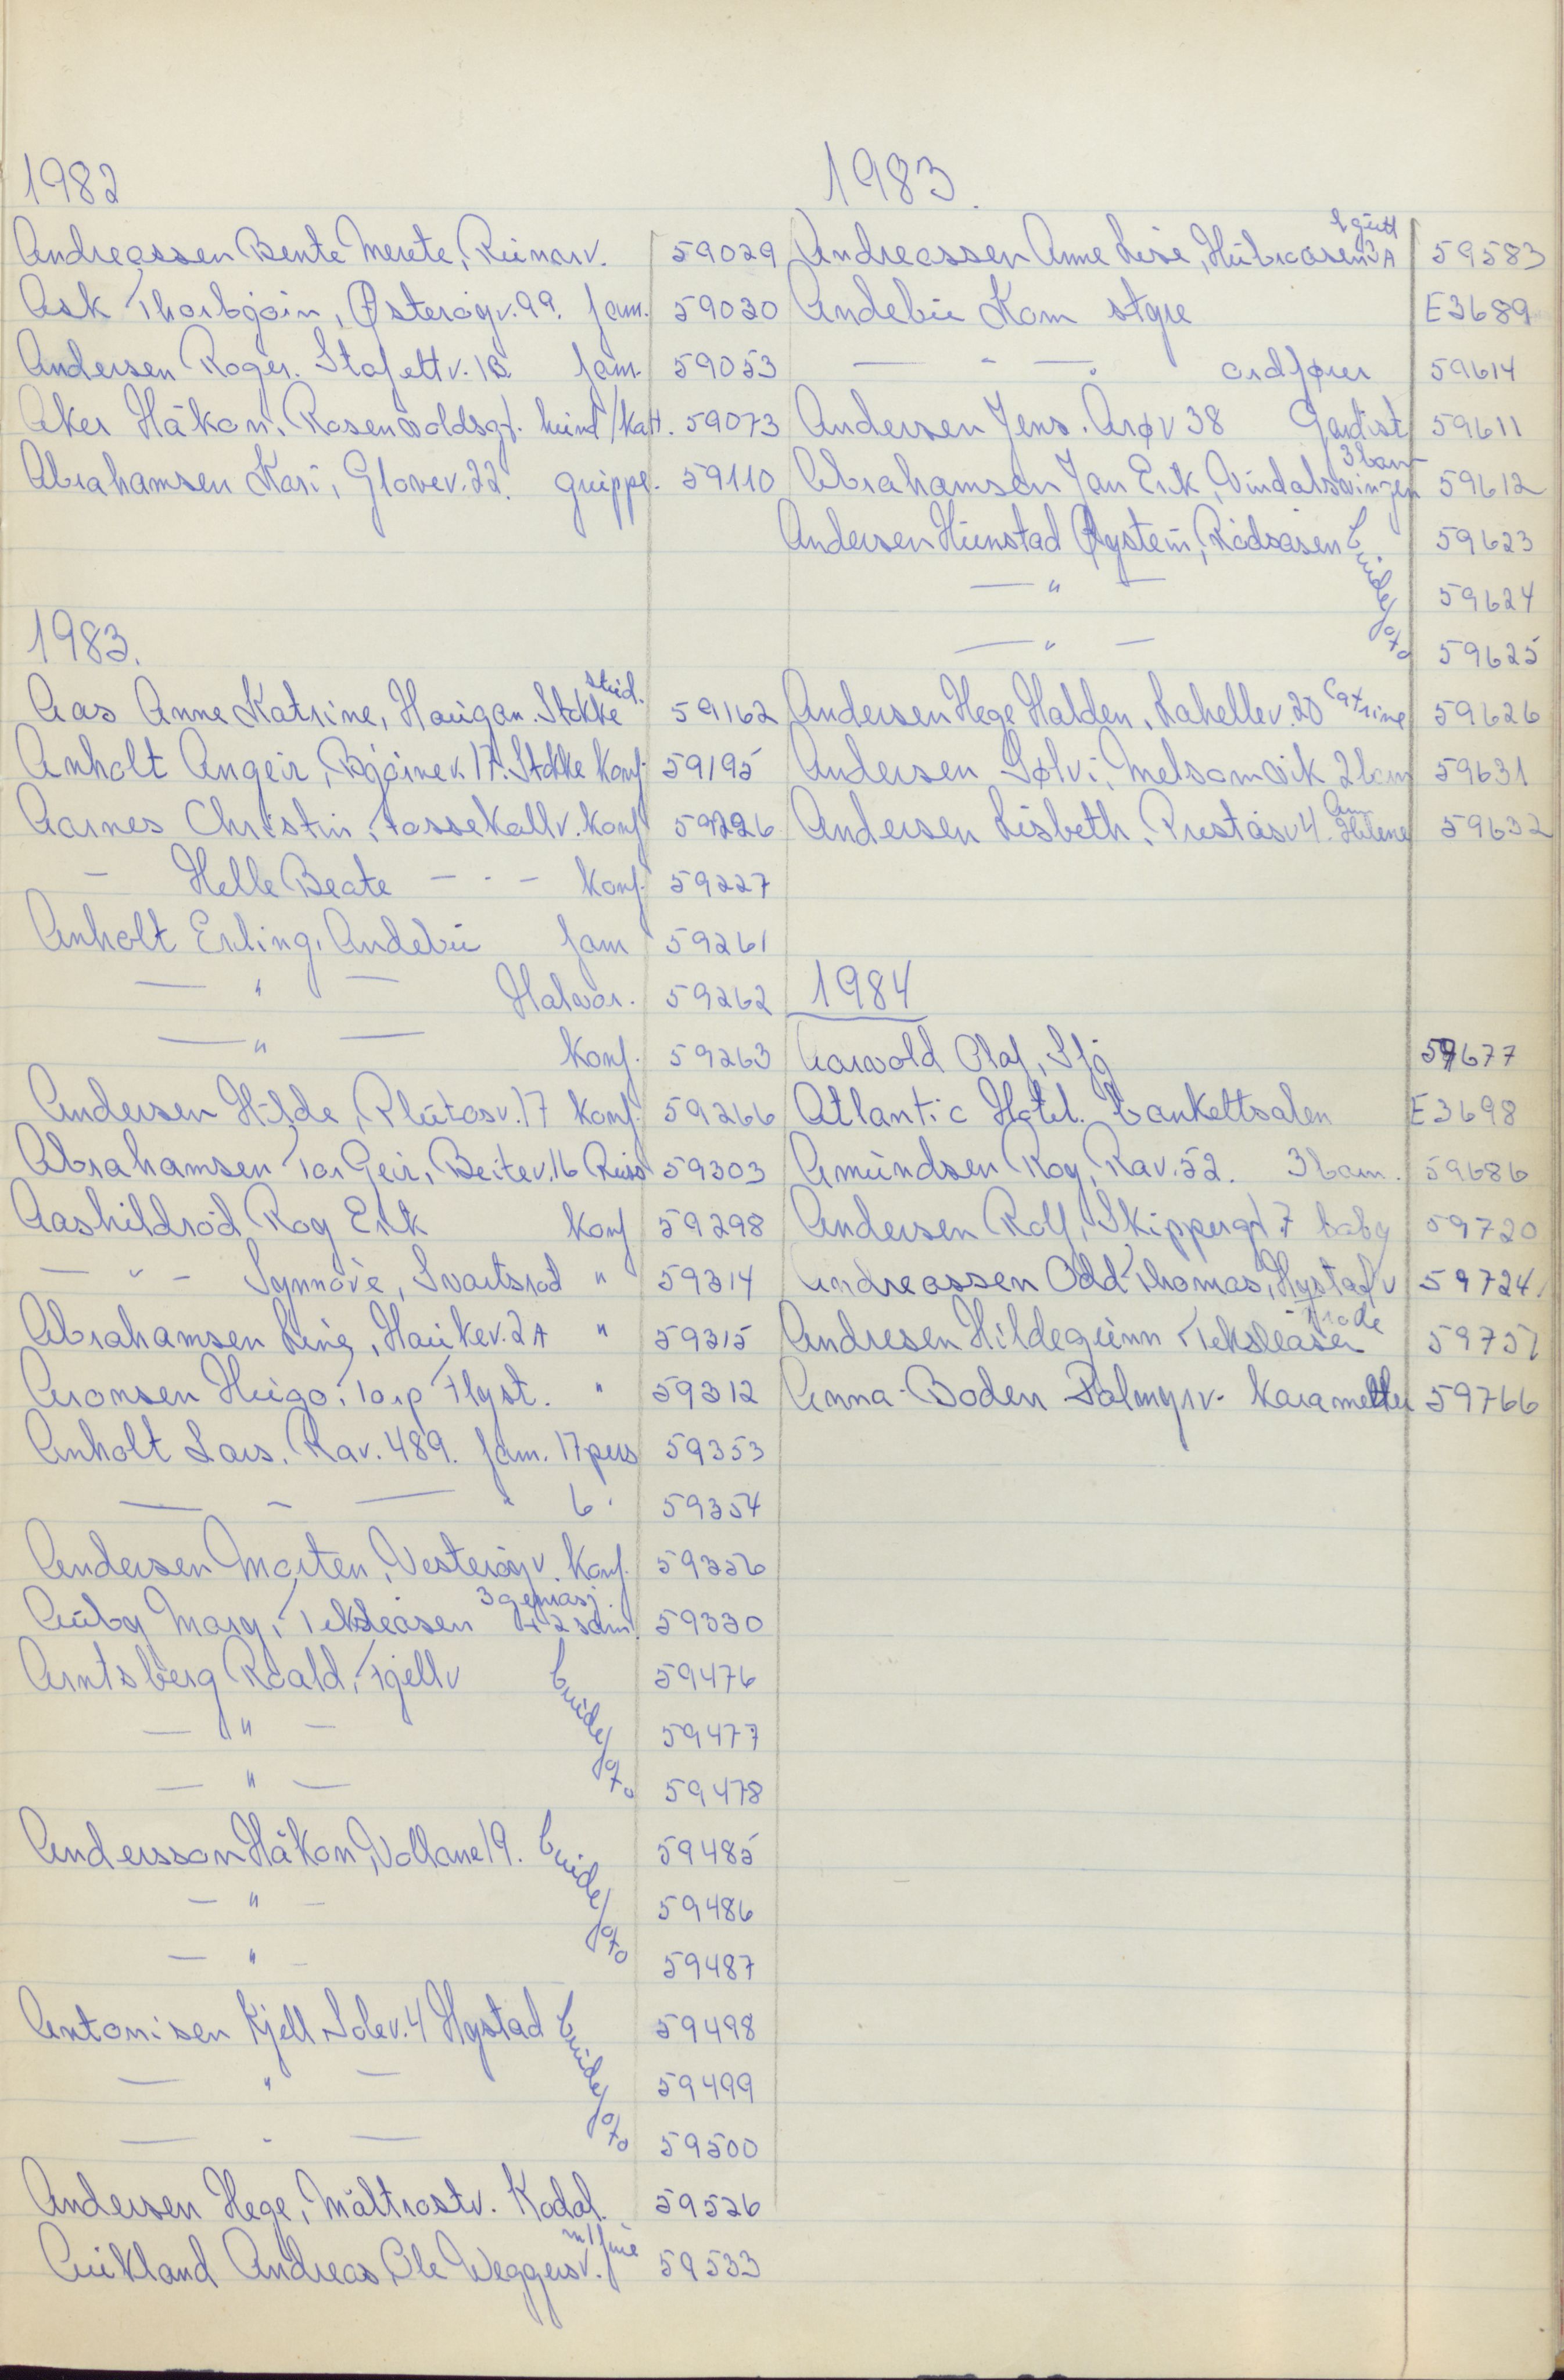 1982
Andreassen Bente Merete, Runarv. 59029
Ask Thorbjørn, Østerøyv. 99. fam. 59030
Andersen Roger. Stafettv. 1B fam. 59053
Aker Håkon. Rosenvoldsgt. hund/katt. 59073
Abrahamsen Kari, Glovev. 22. gruppe. 59110
1983.
Aas Anne Katrine, Haugan. Stokke stud. 59162
Anholt Angeir, Bjørnev. 17. Stokke Konf. 59195
Aarnes Christin, Fossekallv. Konf 59226
– Helle Beate – " – Konf. 59227
Anholt Erling. Andebu fam 59261
— " — Halvor. 59262
— " — Konf. 59263
Andersen Hilde, Plutosv. 17 Konf. 59266
Abrahamsen Tor Geir, Beitev. 16 Russ 59303
Aashildrød Roy Erik Konf 59298
— " – Synnøve, Svartsrød " 59314
Abrahamsen Line, Haukev. 2A " 59315
Aronsen Hugo. Torp Flyst. " 59312
Anholt Lars. Rav. 489. fam. 17 pers 59353
— " — " 6 " 59354
Andersen Morten, Vesterøyv. Konf. 59356
Auby Mary, Teksleåsen 3 generasj. + 2 søm. 59330
Arntsberg Roald, Fjellv brude/foto 59476
— " — 59477
— " — 59478
Andersson Håkon, Vollane 19. brude/foto 59485
— " – 59486
— " – 59487
Antonisen Kjell Solev. 4 Hystad brude/foto 59498
— " — 59499
— " — 59500
Andersen Hege, Måltrostv. Kodal. 59526
Aukland Andreas, Ole Weggersv. m/frue 59533
1983.
Andreassen Anne Lise, Hübroåsen 3A 1 gutt 59583
Andebu Kom styre E3689
— " —. ordfører 59614
Andersen Jens. Arøv 38 Gardist 59611
Abrahamsen Jan Erik, Vindalsvingen 3 barn 59612
Andersen Hunstad Øystein, Rødsåsen brude/foto 59623
— " — 59624
— " — 59625
Andersen Hege Halden, Lahellev. 20 Catrine 59626
Andersen Sølvi, Melsomvik 2 barn 59631
Andersen Lisbeth. Preståsv 4. Ann Helene 59632
1984
Aarvold Olaf, Sfj 59677
Atlantic Hotel. Bankettsalen E3698
Amundsen Roy, Rav. 52. 3 barn. 59686
Andersen Rolf, Skippergt. 7 baby 59720
Andreassen Odd Thomas, Hystadv 59724
Andresen Hildegunn Teksleåsen Frode 59751
Anna-Boden Palmyrv. karameller 59766